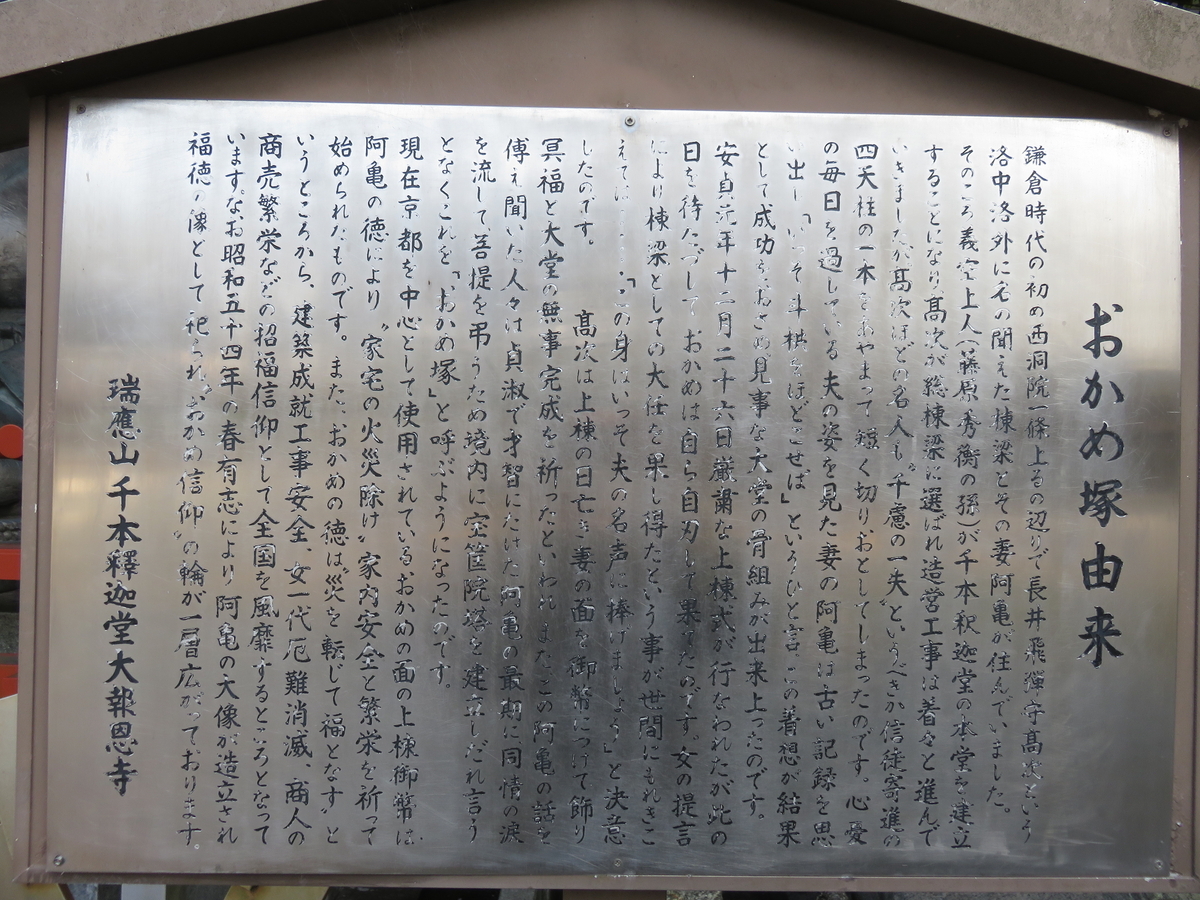 おかめ塚由来
鎌倉時代の初め西洞院一條上るの辺りで長井飛騨守高次という
洛中洛外に名の聞えた棟梁とその妻阿亀が住んでいました。
そのころ義空上人(藤原秀衡の孫)が千本釈迦堂の本堂を建立
することになり高次が総棟梁に選ばれ造営工事は着々と進んで
いきましたが高次ほどの名人も"千慮の一失"というべきか信徒寄進の
四天柱の一本をあやまって短く切りおとしてしまったのです。心憂
の毎日を過している夫の姿を見た妻の阿亀は古い記録を思
い出し「いっそ斗栱をほどこせば」というひと言この着想が結果
として成功をおさめ見事な大堂の骨組みが出来上ったのです。
安貞元年十二月二十六日厳粛な上棟式が行なわれたが此の
日を待たづして おかめは自ら自刃して果てたのです。女の提言
により棟梁としての大任を果し得たという事が世間にもれきこ
えては……「この身はいっそ夫の名声に捧げましょう」と決意
したのです。 高次は上棟の日亡き妻の面を御幣につけて飾り
冥福と大堂の無事完成を祈ったといわれ またこの阿亀の話を
傳え聞いた人々は貞淑で才智にたけた阿亀の最期に同情の涙
を流して菩提を弔うため境内に宝筐院塔を建立しだれ言う
となくこれを「おかめ塚」と呼ぶようになったのです。
現在京都を中心として使用されているおかめの面の上棟御幣は
阿亀の徳により"家宅の火災除け"家内安全と繁栄を祈って
始められたものです。また、おかめの徳は"災を転じて福となす"と
いうところから、建築成就工事安全、女一代厄難消滅、商人の
商売繁栄などの招福信仰として全国を風靡するところとなって
います。なお昭和五十四年の春有志により阿亀の大像が造立され
福徳の像として祀られ、"おかめ信仰"の輪が一層広がっております。
瑞應山千本釋迦堂大報恩寺